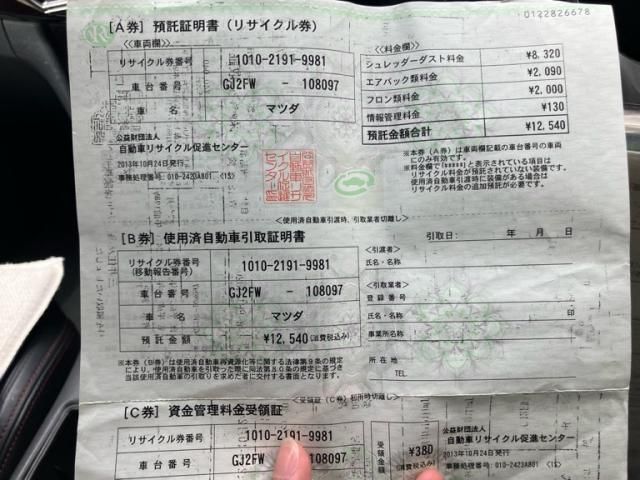 0122826678
[A券] 預託証明書 (リサイクル券)
<<車両欄>>
リサイクル券番号 1010-2191-9981
車台番号 GJ2FW - 108097
車名 マツダ
公益財団法人
自動車リサイクル促進センター
2013年10月24日発行
事務処理番号: 010-2423A801 <1S>
<<料金欄>>
シュレッダーダスト料金 ¥8,320
エアバック類料金 ¥2,090
フロン類料金 ¥2,000
情報管理料金 ¥130
預託金額合計 ¥12,540
※本券(A券)は車両欄記載の車台番号の車両
にのみ有効です。
※料金欄で[*****]と表示されている項目は
リサイクル料金が預託されていない装備です。
使用済自動車引渡時に装備がある場合は
リサイクル料金の追加預託が必要です。
<使用済自動車引渡時、引取業者切離し>
[B券] 使用済自動車引取証明書
リサイクル券番号
(移動報告番号) 1010-2191-9981
車台番号 GJ2FW - 108097
車名 マツダ
預託金額 ¥12,540 (消費税込み)
※本券(B券)は使用済自動車再資源化等に関する法律第9条の規定
により、使用済自動車を引取った際に同法第80条の規定に基づき
当該使用済自動車の引取りを求めた者に交付する書面となります。
引取日: 年 月 日
<引渡者>
氏名・名称
<引取業者>
登録番号
氏名・名称 印
事業所名称
所在地
TEL
<受領証(C券)利用時切離し>
[C券] 資金管理料金受領証
リサイクル券番号 1010-2191-9981
車台番号 GJ2FW - 108097
受領金額 ¥380
(消費税込み)
公益財団法人
自動車リサイクル促進センター
2013年10月24日発行
事務処理番号: 010-2423A801 <1S>